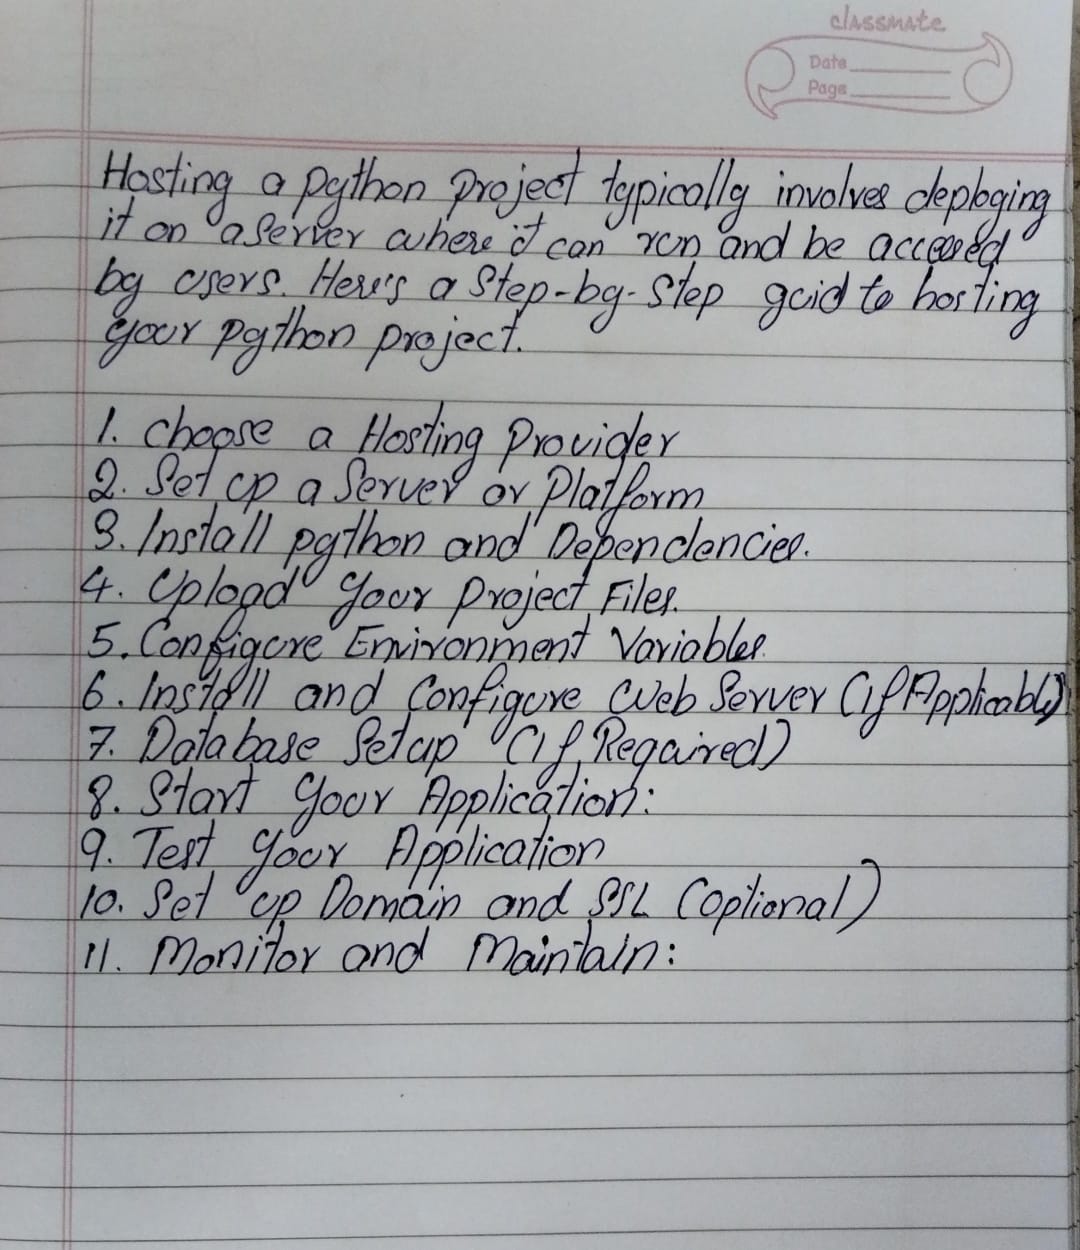 classmate
Date
Page
Hosting a python project typically involves deploying
it on a server where it can run and be accessed
by users. Here's a Step-by-Step guid to hosting
your python project.
1. Choose a Hosting Provider
2. Set up a Server or Platform
3. Install python and Dependencies.
4. Upload your Project Files.
5. Configure Environment Variables.
6. Install and Configure Web Server (If Applicable)
7. Database Setup (If Required)
8. Start your Application:
9. Test your Application
10. Set up Domain and SSL (optional)
11. Monitor and Maintain: